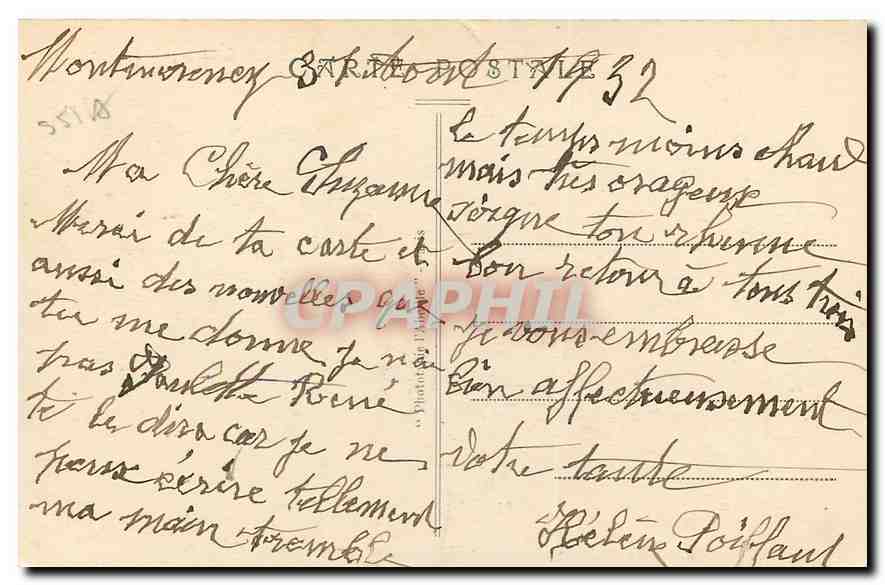 CARTE POSTALE
Montmorency 31 Aout 1932
551 A
Ma Chère Suzanne
Merci de ta carte et
aussi des nouvelles que
tu me donne je n'ai
pas Paulette René
te le dira car je ne
peux écrire tellement
ma main tremble
le temps moins chaud
mais très orageux
soigne ton rhume
bon retour à tous trois
je vous embrasse
bien affectueusement
votre tante
Hélène Poiffaut
CPAPHIL